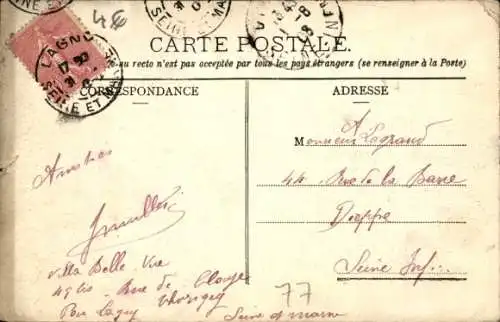 4€
LAGNY
17 30
SEINE ET MARNE
CARTE POSTALE
au recto n'est pas acceptée par tous les pays étrangers (se renseigner à la Poste)
CORRESPONDANCE
ADRESSE
Monsieur A Legrand
44 Rue de la Barre
Dieppe
Seine Inf.
Amitiés
Villa Belle Vue
49 bis Rue de
Thorigny
Par Lagny
Seine et Marne
77